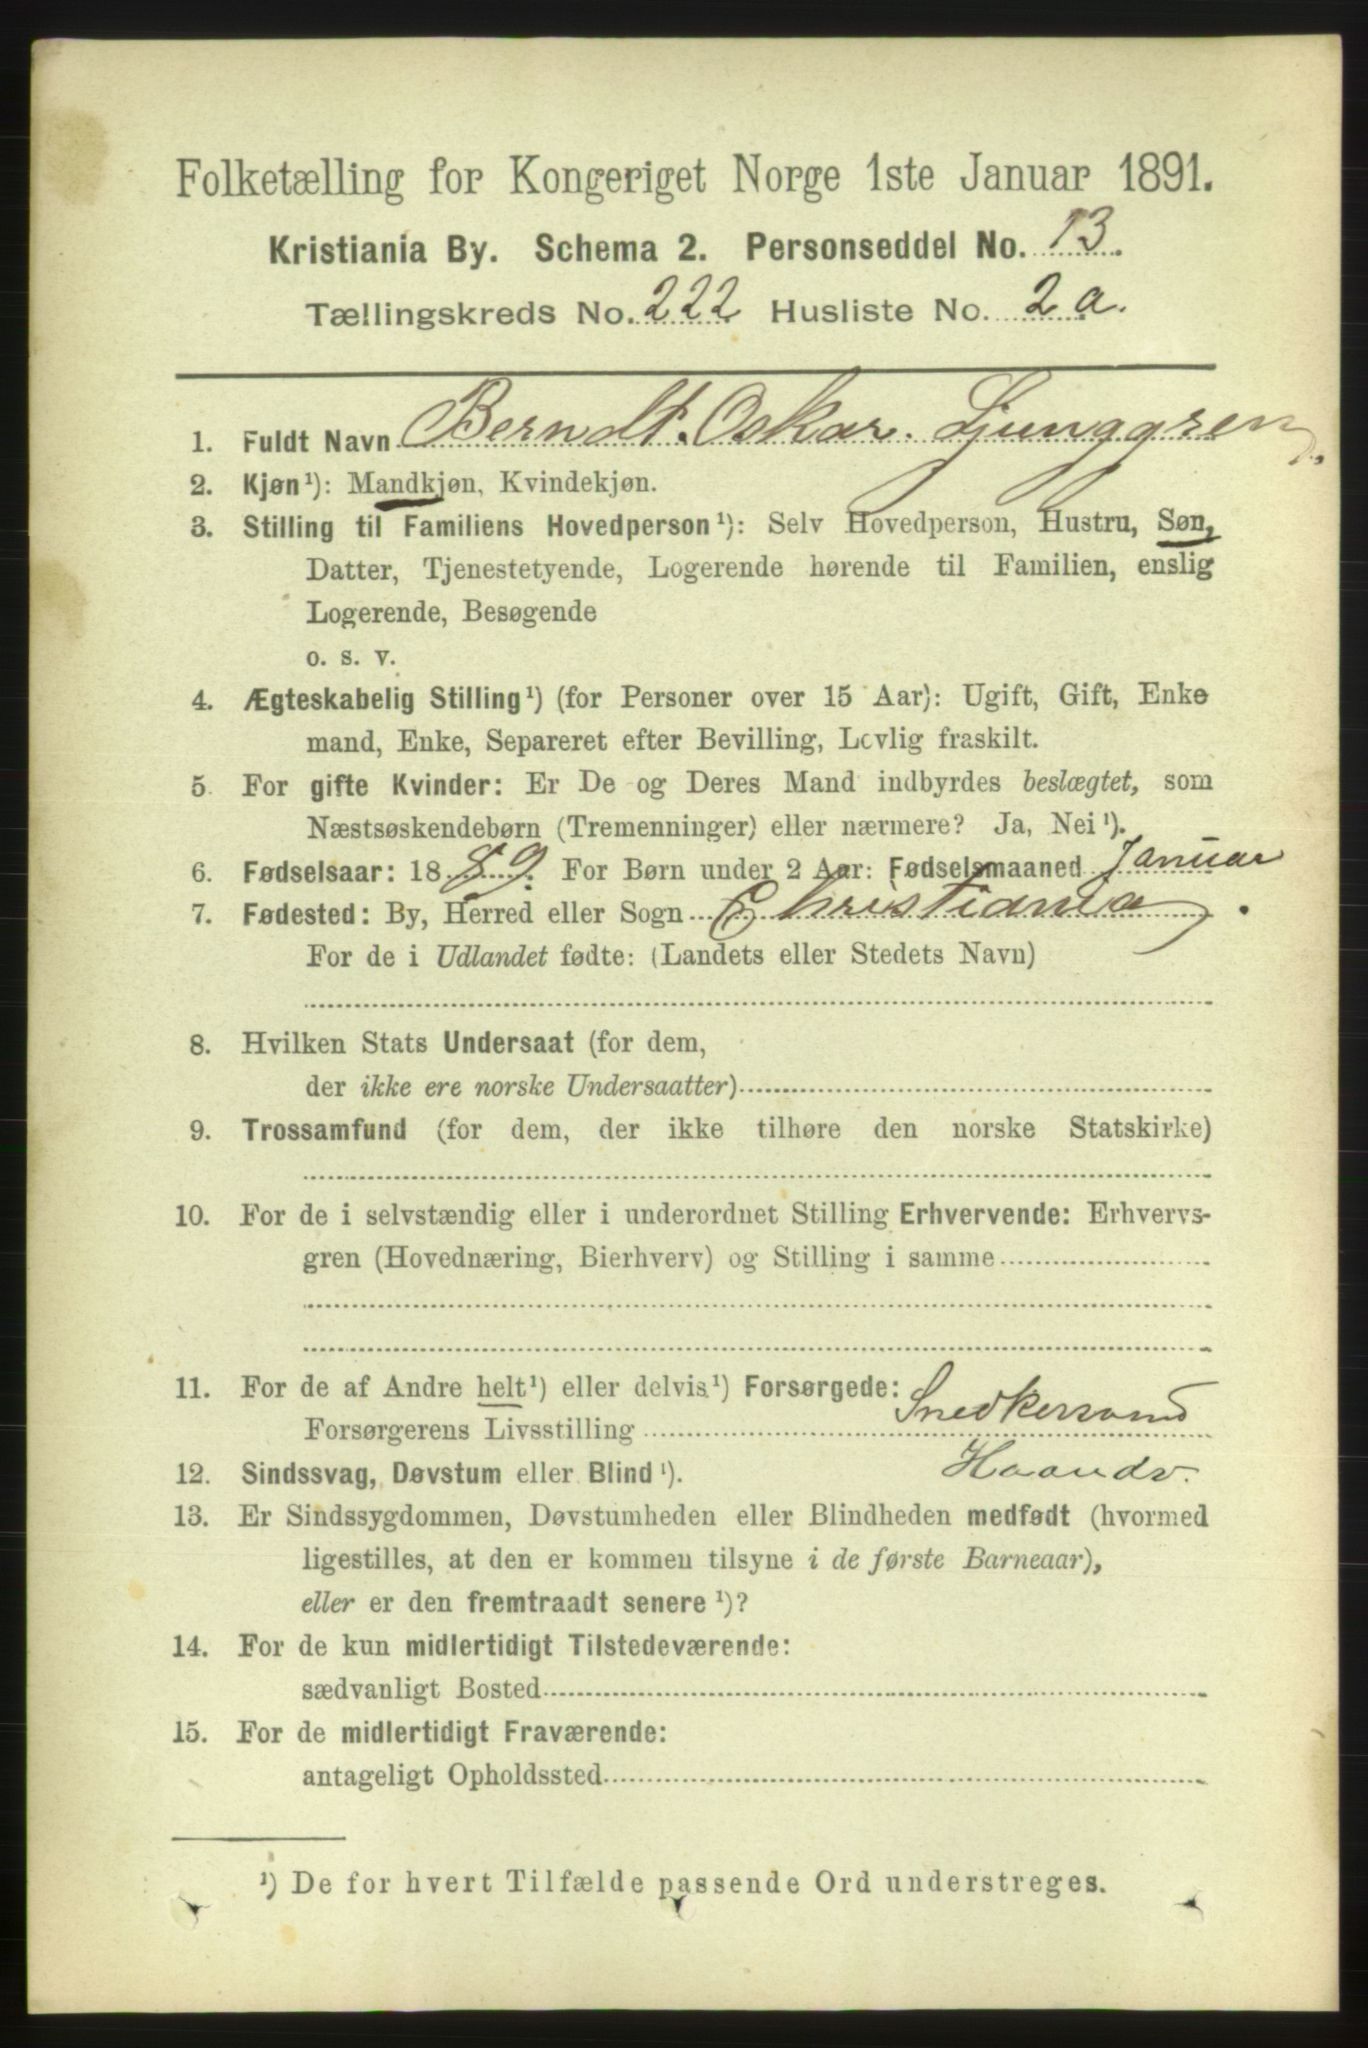 Folketælling for Kongeriget Norge 1ste Januar 1891.
Kristiania By. Schema 2. Personseddel No. 13.
Tællingskreds No. 222 Husliste No. 2 a.
1. Fuldt Navn Berndt. Oskar. Ljunggren.
2. Kjøn¹): Mandkjøn, Kvindekjøn.
3. Stilling til Familiens Hovedperson¹): Selv Hovedperson, Hustru, Søn,
Datter, Tjenestetyende, Logerende hørende til Familien, enslig
Logerende, Besøgende
o. s. v.
4. Ægteskabelig Stilling¹) (for Personer over 15 Aar): Ugift, Gift, Enke
mand, Enke, Separeret efter Bevilling, Lovlig fraskilt.
5 For gifte Kvinder: Er De og Deres Mand indbyrdes beslægtet, som
Næstsøskendebørn (Tremenninger) eller nærmere? Ja, Nei¹).
6. Fødselsaar: 1889. For Børn under 2 Aar: Fødselsmaaned Januar
7. Fødested: By, Herred eller Sogn Christiania.
For de i Udlandet fødte: (Landets eller Stedets Navn)
8. Hvilken Stats Undersaat (for dem,
der ikke ere norske Undersaatter)
9. Trossamfund (for dem, der ikke tilhøre den norske Statskirke)
10. For de i selvstændig eller i underordnet Stilling Erhvervende: Erhvervs-
gren (Hovednæring, Bierhverv) og Stilling i samme
11. For de af Andre helt¹) eller delvis¹) Forsørgede:
Forsørgerens Livsstilling Snedkersvend
Haandv.
12. Sindssvag, Døvstum eller Blind¹).
13. Er Sindssygdommen, Døvstumheden eller Blindheden medfødt (hvormed
ligestilles, at den er kommen tilsyne i de første Barneaar),
eller er den fremtraadt senere¹)?
14. For de kun midlertidigt Tilstedeværende:
sædvanligt Bosted
15. For de midlertidigt Fraværende:
antageligt Opholdssted
¹) De for hvert Tilfælde passende Ord understreges.